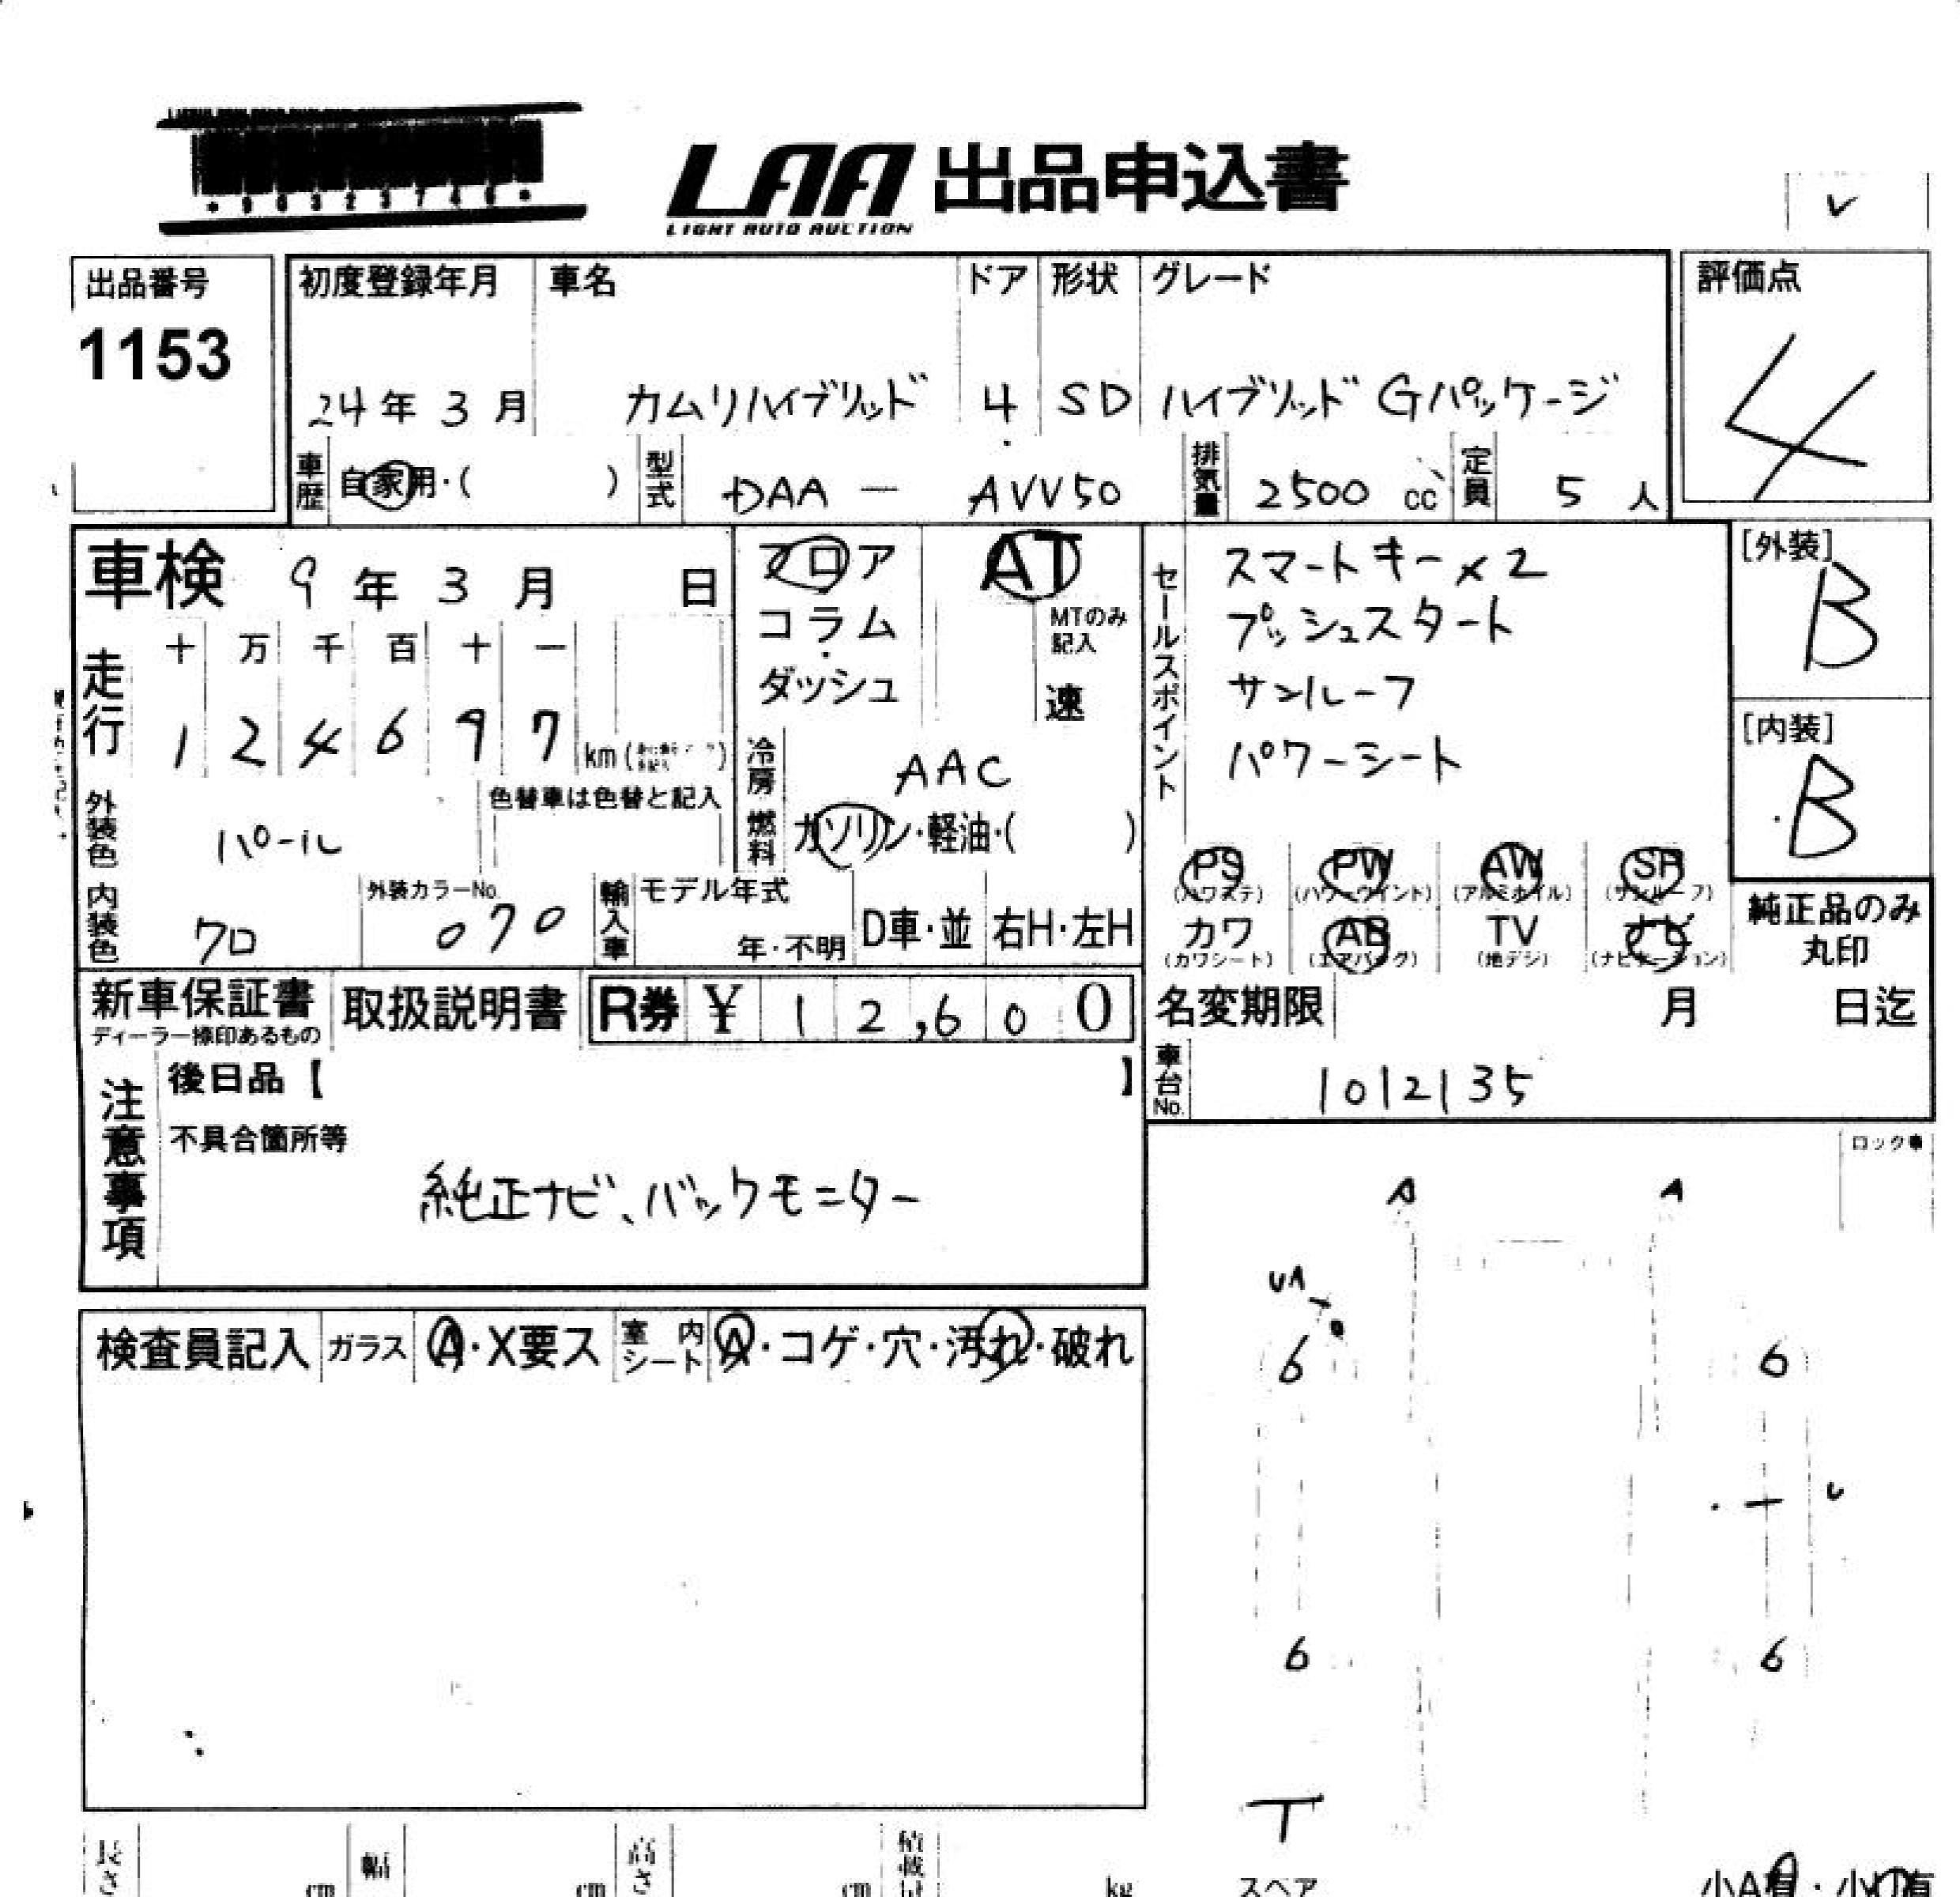 LAA 出品申込書
LIGHT AUTO AUCTION
出品番号
1153
初度登録年月 車名 ドア 形状 グレード
24年 3月 カムリハイブリッド 4 SD ハイブリッド Gパッケージ
車歴 自家用・( ) 型式 DAA - AVV50 排気量 2500 cc 定員 5 人
評価点
4
車検 9年 3月 日
走行 十 万 千 百 十 一
1 2 4 6 9 7 km
外装色 パール
色替車は色替と記入
内装色 クロ
外装カラーNo. 070
フロア
コラム
ダッシュ
AT
MTのみ
記入
速
冷房 AAC
燃料 ガソリン・軽油・( )
輸入車 モデル年式
年・不明 D車・並 右H・左H
セールスポイント
スマートキー×2
プッシュスタート
サンルーフ
パワーシート
[外装]
B
[内装]
B
PS PW AW SR
(パワステ) (パワーウインド) (アルミホイル) (サンルーフ)
カワ AB TV ナビ
(カワシート) (エアバッグ) (地デジ) (ナビゲーション)
純正品のみ
丸印
新車保証書
ディーラー捺印あるもの
取扱説明書
R券 ¥ 12,600
名変期限 月 日迄
車台No. 1012135
注意事項
後日品【 】
不具合箇所等
純正ナビ、バックモニター
検査員記入 ガラス A・X要ス 室内シート A・コゲ・穴・汚れ・破れ
ロック車
A A
UA
6 6
U
6 6
T
スペア
長さ cm 幅 cm 高さ cm 積載量 kg